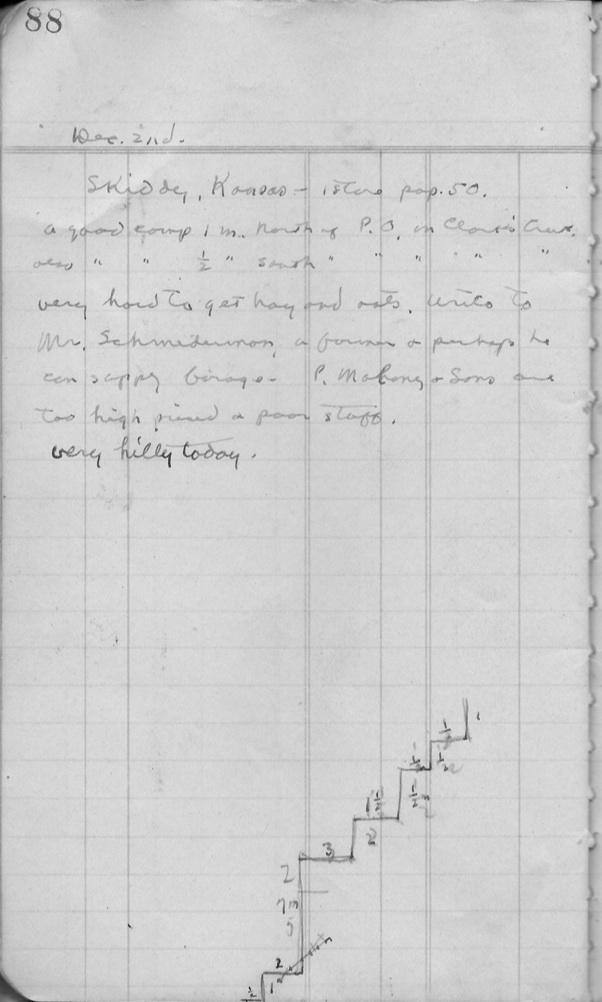 88
Dec. 2nd.
Skiddy, Kansas - 1 store pop. 50.
a good camp 1 m. north of P.O. on Clark's Creek.
also " " ½ " south " " " " "
very hard to get hay and oats. Write to
Mr. a farmer & perhaps he
can supply forage. P. Mahoney & Sons are
too high priced & poor stuff.
very hilly today.
½ 1
½ ½
1½ ½
3 2
2
7m
5
2
½ 1